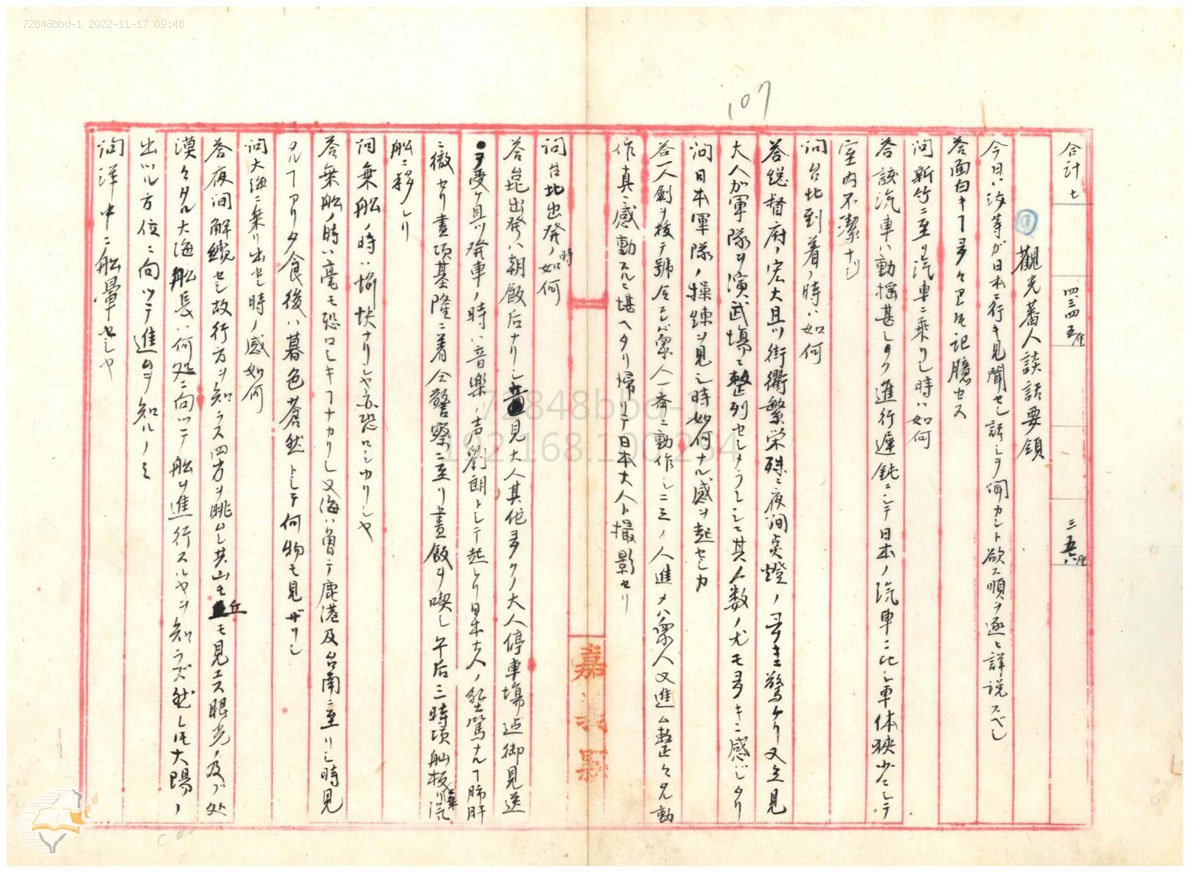 72848bbd-1 2022-11-17 09:48
107
合計七 四三四五厘 三五六厘
観光蕃人談話要領
今日ハ汝等ガ日本ニ行キ見聞セシ話シヲ聞カント欲ス順ヲ逐ヒ詳説スベシ
答面白キヿ多々アレトモ記臆セス
問新竹ニ至リ汽車ニ乗リシ時ハ如何
答該汽車ハ動揺甚シク進行遅鈍ニシテ日本ノ汽車ニ比シ車体狭少ニシテ
室内不潔ナリ
問台北到着ノ時ハ如何
答総督府ノ宏大且ツ街衢繁栄殊ニ夜間点燈ノ多キニ驚ケリ又立見
大人ガ軍隊ヲ演武場ニ整列セシメラレシニ其人数ノ尤モ多キニ感ジタリ
問日本軍隊ノ操練ヲ見シ時如何ナル感ヲ起セシカ
答一人剣ヲ抜テ號令スレバ衆人一斉ニ動作シ二三ノ人進メハ衆人又進ム整々タル動
作真ニ感動スルニ堪ヘタリ帰リテ日本大人ト撮影セリ
問台北出発ノ時如何
答昆出発ハ朝飯后ナリシ立見大人其他多クノ大人停車場迄御見送
ヲ受ケ且ツ発車ノ時ハ音楽ノ声劉朗トシテ起レリ日本大人ノ懇篤ナルヿ肺肝
ニ徹セリ昼頃基隆ニ着全警察ニ至リ昼飯ヲ喫シ午后三時頃舢板ニ乗リ汽
船ニ移レリ
問乗船ノ時ハ愉快ナリシヤ亦恐ロシカリシヤ
答乗船ノ時ハ毫モ恐ロシキヿナカリシ又海ハ曽テ鹿港及台南ニ至リシ時見
タルヿアリ夕食後ハ暮色蒼然トシテ何物モ見ザリシ
問大海ニ乗リ出セシ時ノ感如何
答夜間解纜セシ故行方ヲ知ラス四方ヲ眺ムレ共山モ丘モ見エス眼光ノ及ブ処
漠々タル大海船長ハ何処ニ向ツテ船ヲ進行スルヤヲ知ラズ然レトモ太陽ノ
出ツル方位ニ向ツテ進ムヲ知ルノミ
問洋中ニ船暈セシヤ
嘉義縣
72848bbd-1
192.168.100.234